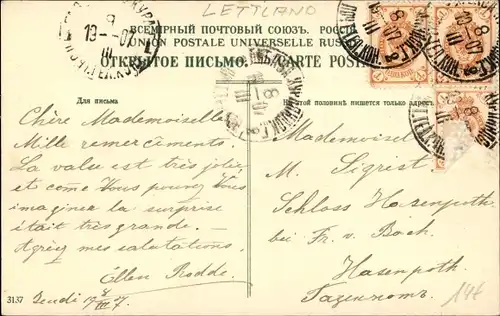 LETTLAND
ВСЕМІРНЫЙ ПОЧТОВЫЙ СОЮЗЪ. РОССІЯ
UNION POSTALE UNIVERSELLE RUSSIE
ОТКРЫТОЕ ПИСЬМО. CARTE POSTALE
Для письма
На этой половинѣ пишется только адресъ.
Chère Mademoiselle
Mille remercîments.
La valse est très jolie
et come Vous pouvez Vous
imaginer la surprise
était très grande.
Agréez mes salutations.
Ellen Rodde.
Jeudi
Mademoiselle
M. Sigrist
Schloss Hasenpoth
bei Fr. v. Boch
Hasenpoth.
Газенпотъ.
3137
8
III
07